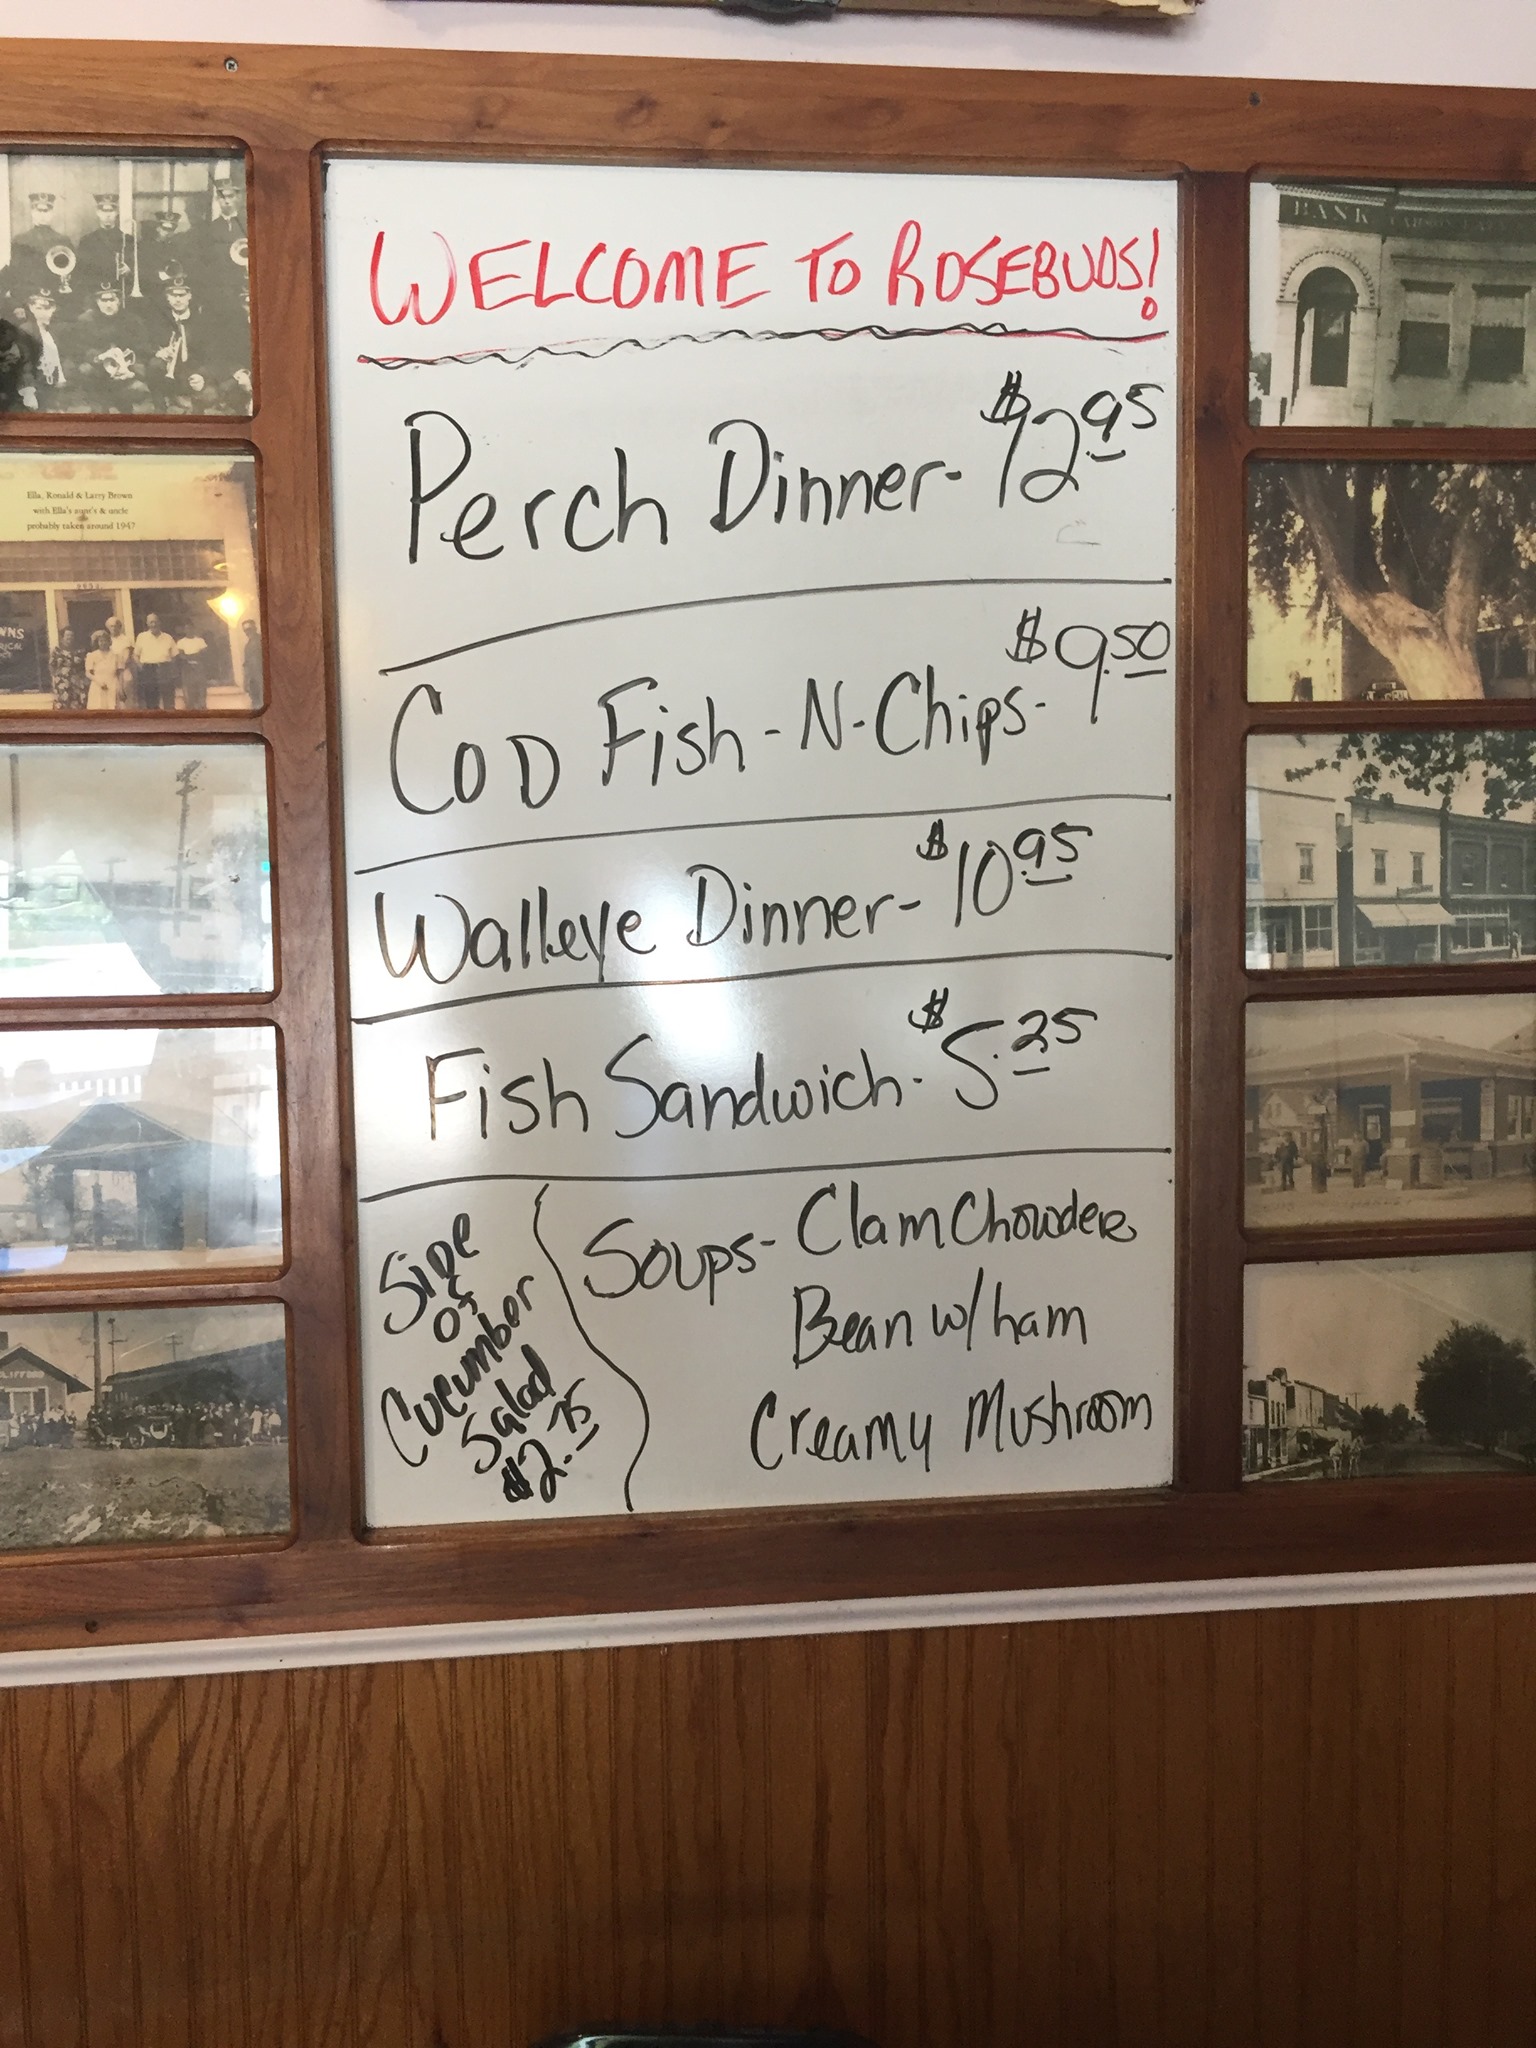 WELCOME TO ROSEBUDS!
Perch Dinner- $12.95
COD Fish-N-Chips- $9.50
Walleye Dinner- $10.95
Fish Sandwich- $5.25
Side
of
Cucumber
Salad
$2.75
Soups- Clam Chowder
Bean w/ham
Creamy Mushroom
Ella, Ronald & Larry Brown
with Ella's aunt's & uncle
probably taken around 1947
BANK